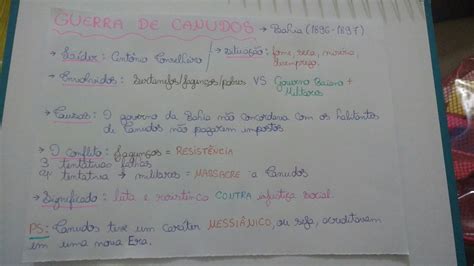 GUERRA DE CANUDOS → Bahia (1896-1897)
→ Líder: Antônio Conselheiro → Situação: fome, seca, miséria, desemprego.
→ Envolvidos: Sertanejos/jagunços/pobres VS Governo Baiano + Militares
→ Causas: O governo da Bahia não concordava com os habitantes
de Canudos não pagarem impostos
→ O conflito: Jagunços = RESISTÊNCIA
3 tentativas falhas
4ª tentativa → militares = MASSACRE a Canudos
→ Significado: luta e resistência CONTRA injustiça social.
PS: Canudos teve um caráter MESSIÂNICO, ou seja, acreditavam
em uma nova Era.